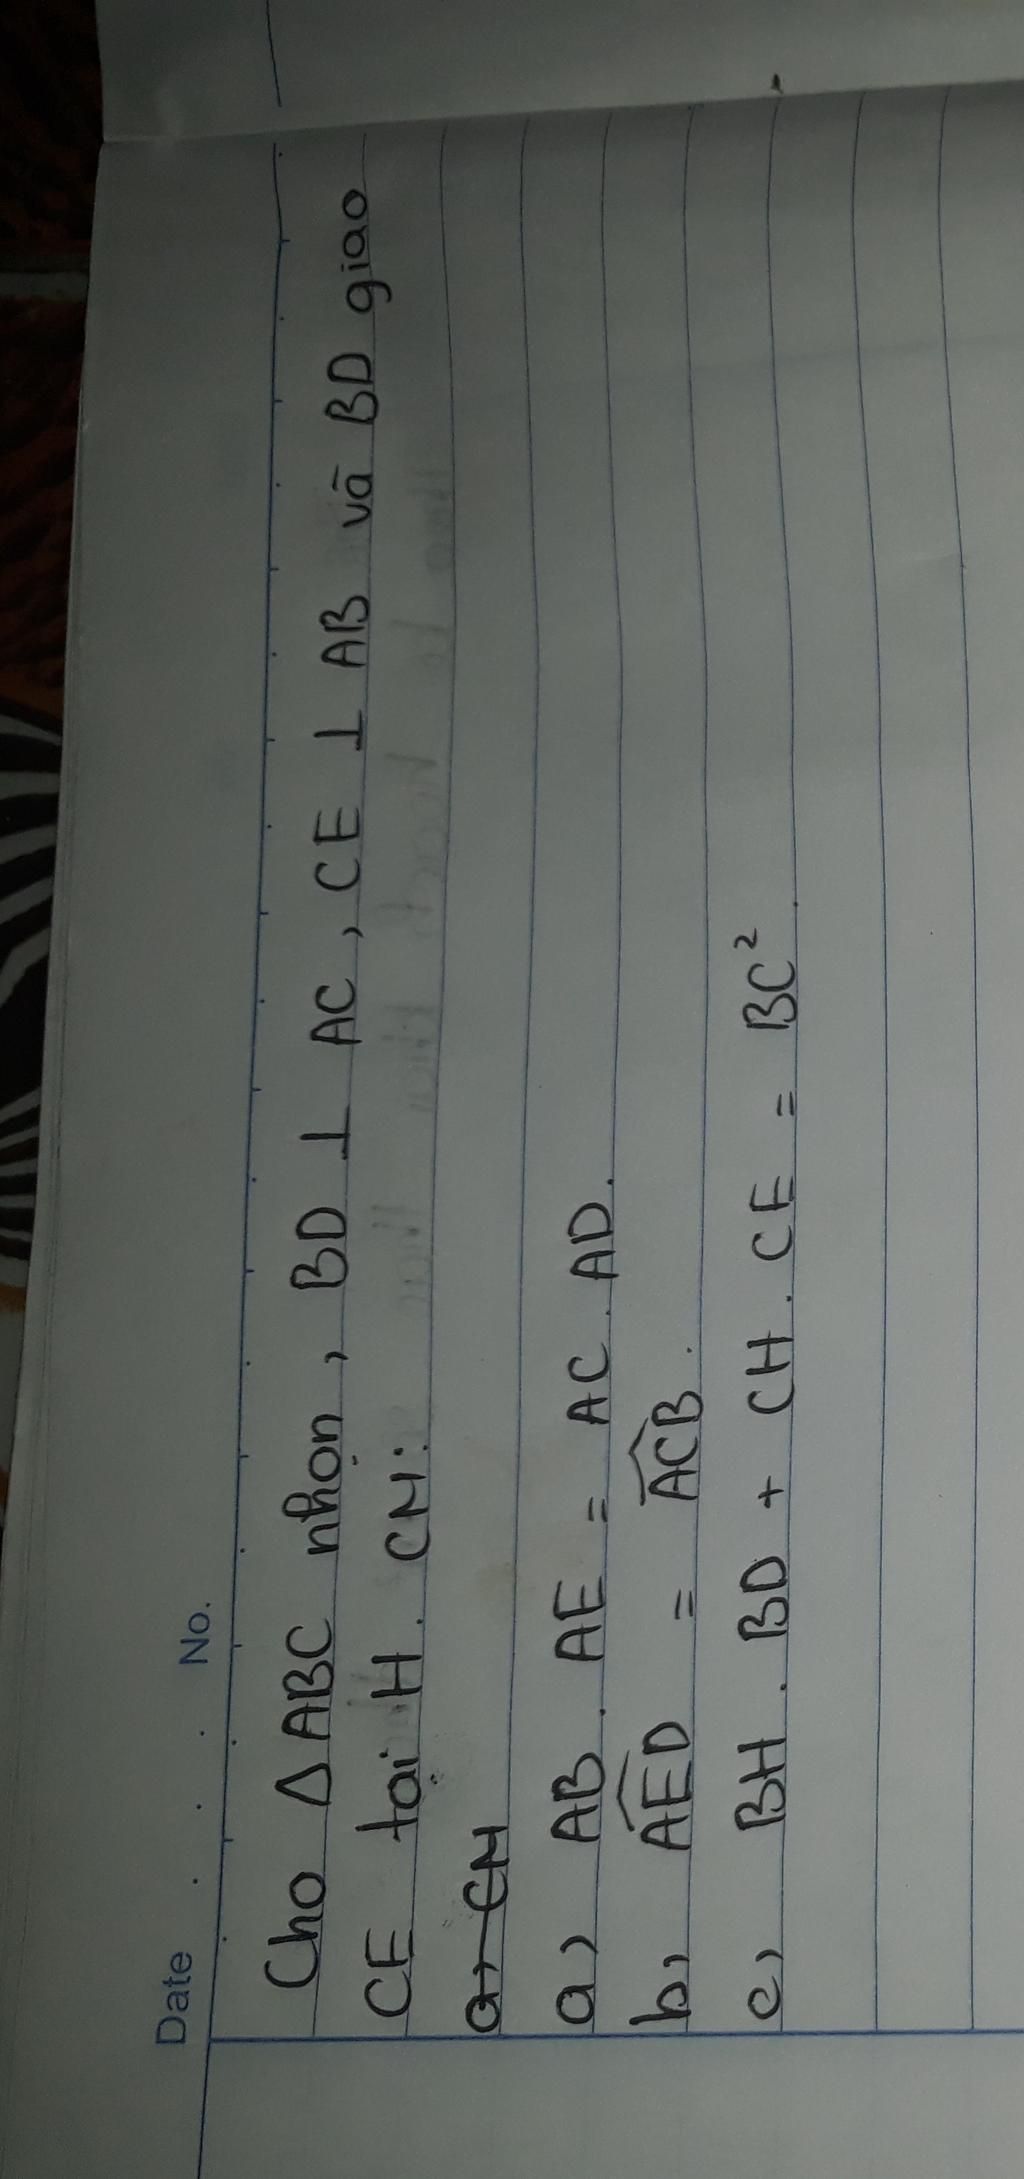 Date . . . No.
Cho Δ ABC nhọn, BD ⊥ AC, CE ⊥ AB và BD giao
CE tại H. CM:
a, CM
a, AB . AE = AC . AD.
b, \widehat{AED} = \widehat{ACB}.
c, BH . BD + CH . CE = BC²